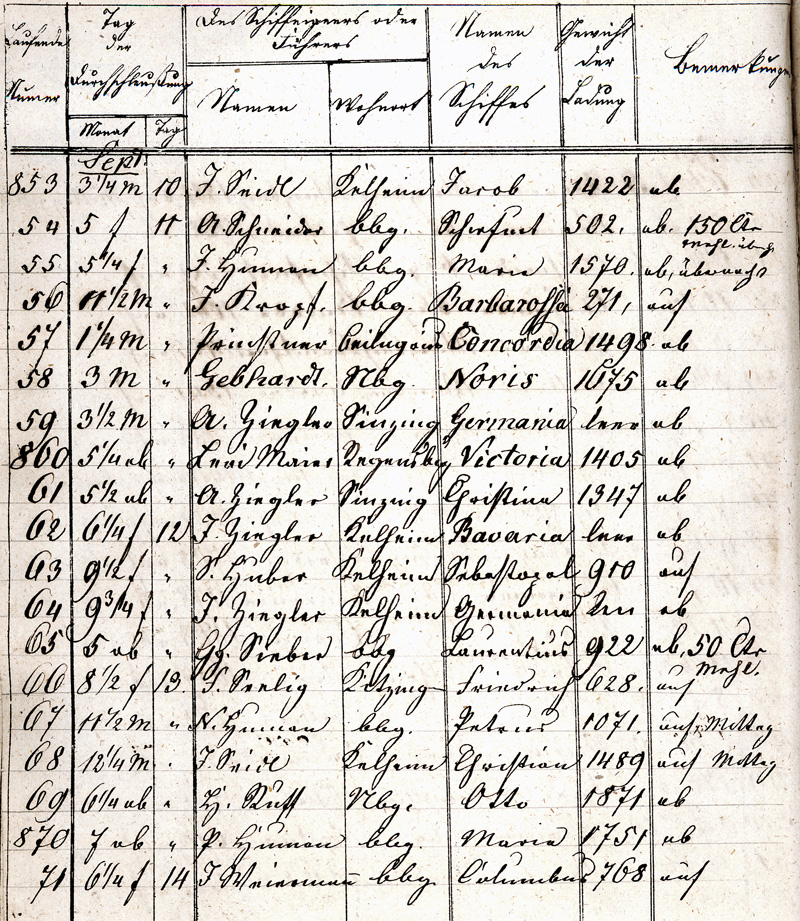 Laufende Numer
Tag der Durchschleußung
Des Schiffeigners oder Führers
Namen des Schiffes
Gewicht der Ladung
Bemerkungen
Namen Wohnort
Monat Tag
Sept.
853 3 1/4 M 10 J. Seidl Kelheim Jacob 1422 ab
54 5 f 11 A. Schneider bbg. 502. ab. 150 Ctr
Mehl.
55 5 1/4 f " J. Human bbg. Marie 1570. ab,
56 11 1/2 M " J. Kropf. bbg. Barbarossa 271, auf
57 1 1/4 M " Prinstner Beilngries Concordia 1498. ab
58 3 M " Gebhardt. Nbg. Noris 1675 ab
59 3 1/2 M " A. Ziegler Sinzing Germania leer ab
860 5 1/4 ab " Maier Regensbg Victoria 1405 ab
61 5 1/2 ab " A. Ziegler Sinzing Christina 1347 ab
62 6 1/4 f 12 J. Ziegler Kelheim Bavaria leer ab
63 9 1/2 f " S. Huber Kelheim Sebastopol 910 auf
64 9 3/4 f " J. Ziegler Kelheim Germania leer ab
65 5 ab " Gg. Sieber bbg Laurentius 922 ab, 50 Ctr
Mehl.
66 8 1/2 f 13. S. Seelig Kitzing Friedrich 628. auf
67 11 1/2 M " N. Human bbg. Petrus 1071. auf, Mittag
68 12 1/4 M " J. Seidl Kelheim Christian 1489 auf Mittag
69 6 1/4 ab " H. Nbg. Otto 1871 ab
870 7 ab " P. Human bbg. Maria 1751 ab
71 6 1/4 f 14 J Weiermann bbg. Columbus 768 auf